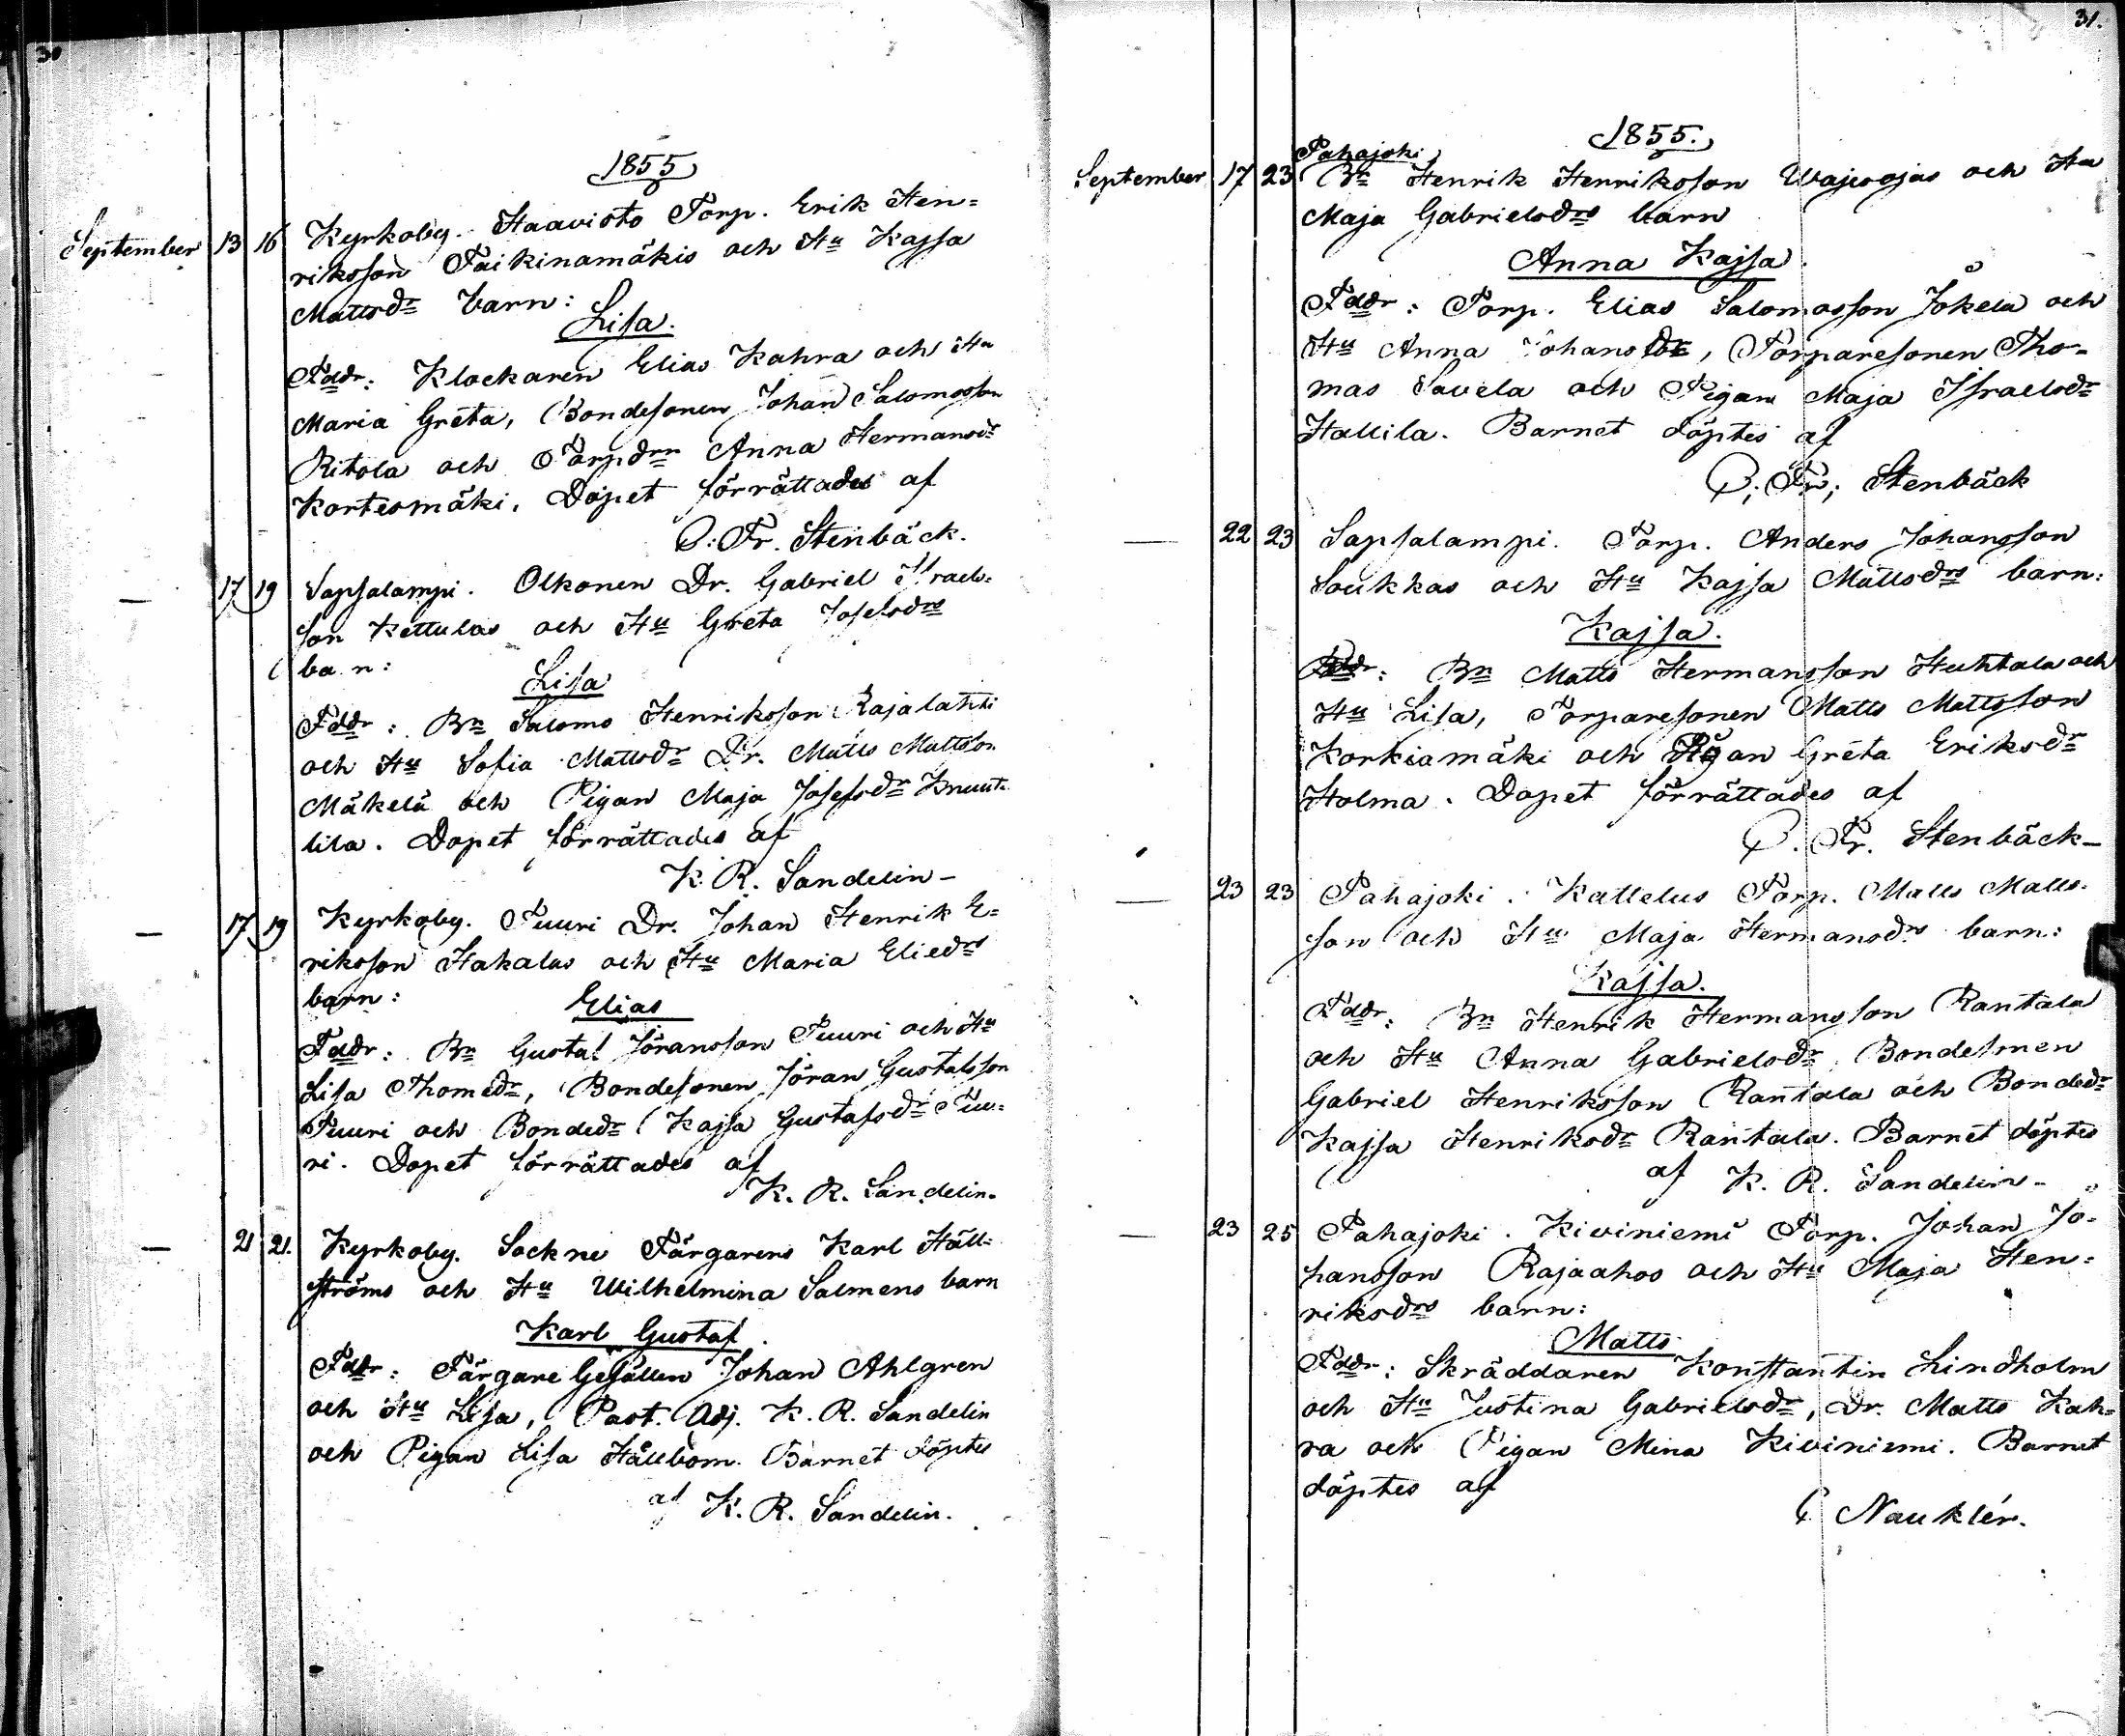 30
1855
September 13 16 Kyrkoby. Haavisto Torp. Erik Hen=
riksson Taikinamäkis och Hu Kajsa
Mattsdr barn:
Lisa.
Fddr: Klockaren Elias Kahra och Hu
Maria Greta, Bondesonen Johan Salomosson
Ritola och Torpdrn Anna Hermansdr
Kortesmäki. Dopet förrättades af
P. Fr. Stenbäck.
— 17 19 Sapsalampi. Olkonen Dr. Gabriel Israels=
son Kettulas och Hu Greta Josefsdrs
ba n:
Lisa
Fddr: Bn Salomo Henriksson Rajalahti
och Hu Sofia Mattsdr Dr. Matts Mattsson
Mäkelä och Pigan Maja Josefsdr Knuut
lila. Dopet förrättades af
K. R. Sandelin—
— 17 19 Kyrkoby. Tuuri Dr. Johan Henrik E=
riksson Hakalas och Hu Maria Eliedrs
barn:
Elias
Fddr: Bn Gustaf Göransson Tuuri och Hu
Lisa Thomedr, Bondesonen Göran Gustafsson
Tuuri och Bondedr Kajsa Gustafsdr Tuu=
ri. Dopet förrättades af
K. R. Sandelin.
— 21 21. Kyrkoby. Sockne Färgarens Karl Häll=
ströms och Hu Wilhelmina Salmens barn
Karl Gustaf.
Fddr: Färgare Gesällen Johan Ahlgren
och Hu Lisa, Past. Adj. K. R. Sandelin
och Pigan Lisa Hällbom. Barnet döptes
af K. R. Sandelin.
31.
1855.
Pahajoki
September 17 23 Bn Henrik Henriksson Wajuojas och Hu
Maja Gabrielsdrs barn
Anna Kajsa.
Fddr: Torp. Elias Salomosson Jokela och
Hu Anna Johansdr, Torparesonen Tho-
mas Savela och Pigan Maja Israelsdr
Hallila. Barnet döptes af
P. Fr; Stenbäck
— 22 23 Sapsalampi. Torp. Anders Johansson
Soukkas och Hu Kajsa Mattsdrs barn:
Kajsa.
Fddr: Bn Matts Hermansson Huhtala och
Hu Lisa, Torparesonen Matts Mattsson
Korkiamäki och Pigan Greta Eriksdr
Holma. Dopet förrättades af
P. Fr. Stenbäck—
— 23 23 Pahajoki. Kattelus Torp. Matts Matts=
son och Hu Maja Hermansdrs barn:
Kajsa.
Fddr: Bn Henrik Hermansson Rantala
och Hu Anna Gabrielsdr, Bondesonen
Gabriel Henriksson Rantala och Bondedr
Kajsa Henriksdr Rantala. Barnet döptes
af K. R. Sandelin—
— 23 25 Pahajoki. Kiviniemi Torp. Johan Jo-
hansson Rajaahos och Hu Maja Hen=
riksdrs barn:
Matts
Fddr: Skräddaren Konstantin Lindholm
och Hu Justina Gabrielsdr, Dr. Matts Kah=
ra och Pigan Mina Kiviniemi. Barnet
döptes af
Nauklér.